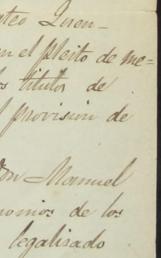 Quen-
en el pleito de me=
los titulos de
provision de
Don Manuel
nomios de los
legalizado